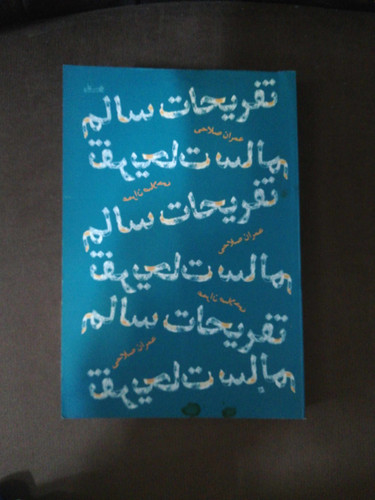 تفریحات سالم
عمران صلاحی
تفریحات سالم
عمران صلاحی
تفریحات سالم
عمران صلاحی
تفریحات سالم
عمران صلاحی
تفریحات سالم
عمران صلاحی
تفریحات سالم